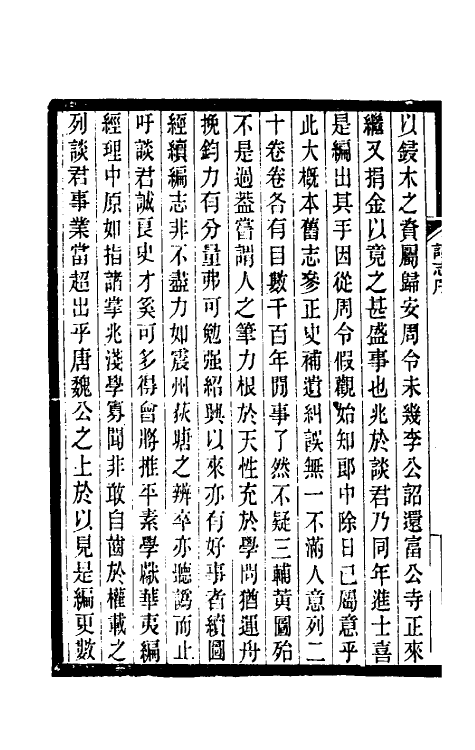 以鋟木之資屬歸安周令未幾李公詔還富公寺正來
繼又捐金以竟之甚盛事也兆於談君乃同年進士喜
是編出其手因從周令假觀始知郎中除日已屬意乎
此大概本舊志參正史補遺糾誤無一不滿人意列二
十卷卷各有目數千百年閒事了然不疑三輔黃圖殆
不是過蓋嘗謂人之筆力根於天性充於學問猶運舟
挽鈞力有分量弗可勉强紹興以來亦有好事者續圖
經續編志非不盡力如震州荻塘之辨卒亦聽譌而止
吁談君誠良史才奚可多得會將推平素學獻華夷編
經理中原如指諸掌兆淺學寡聞非敢自齒於權載之
列談君事業當超出乎唐魏公之上於以見是編更數
談志序